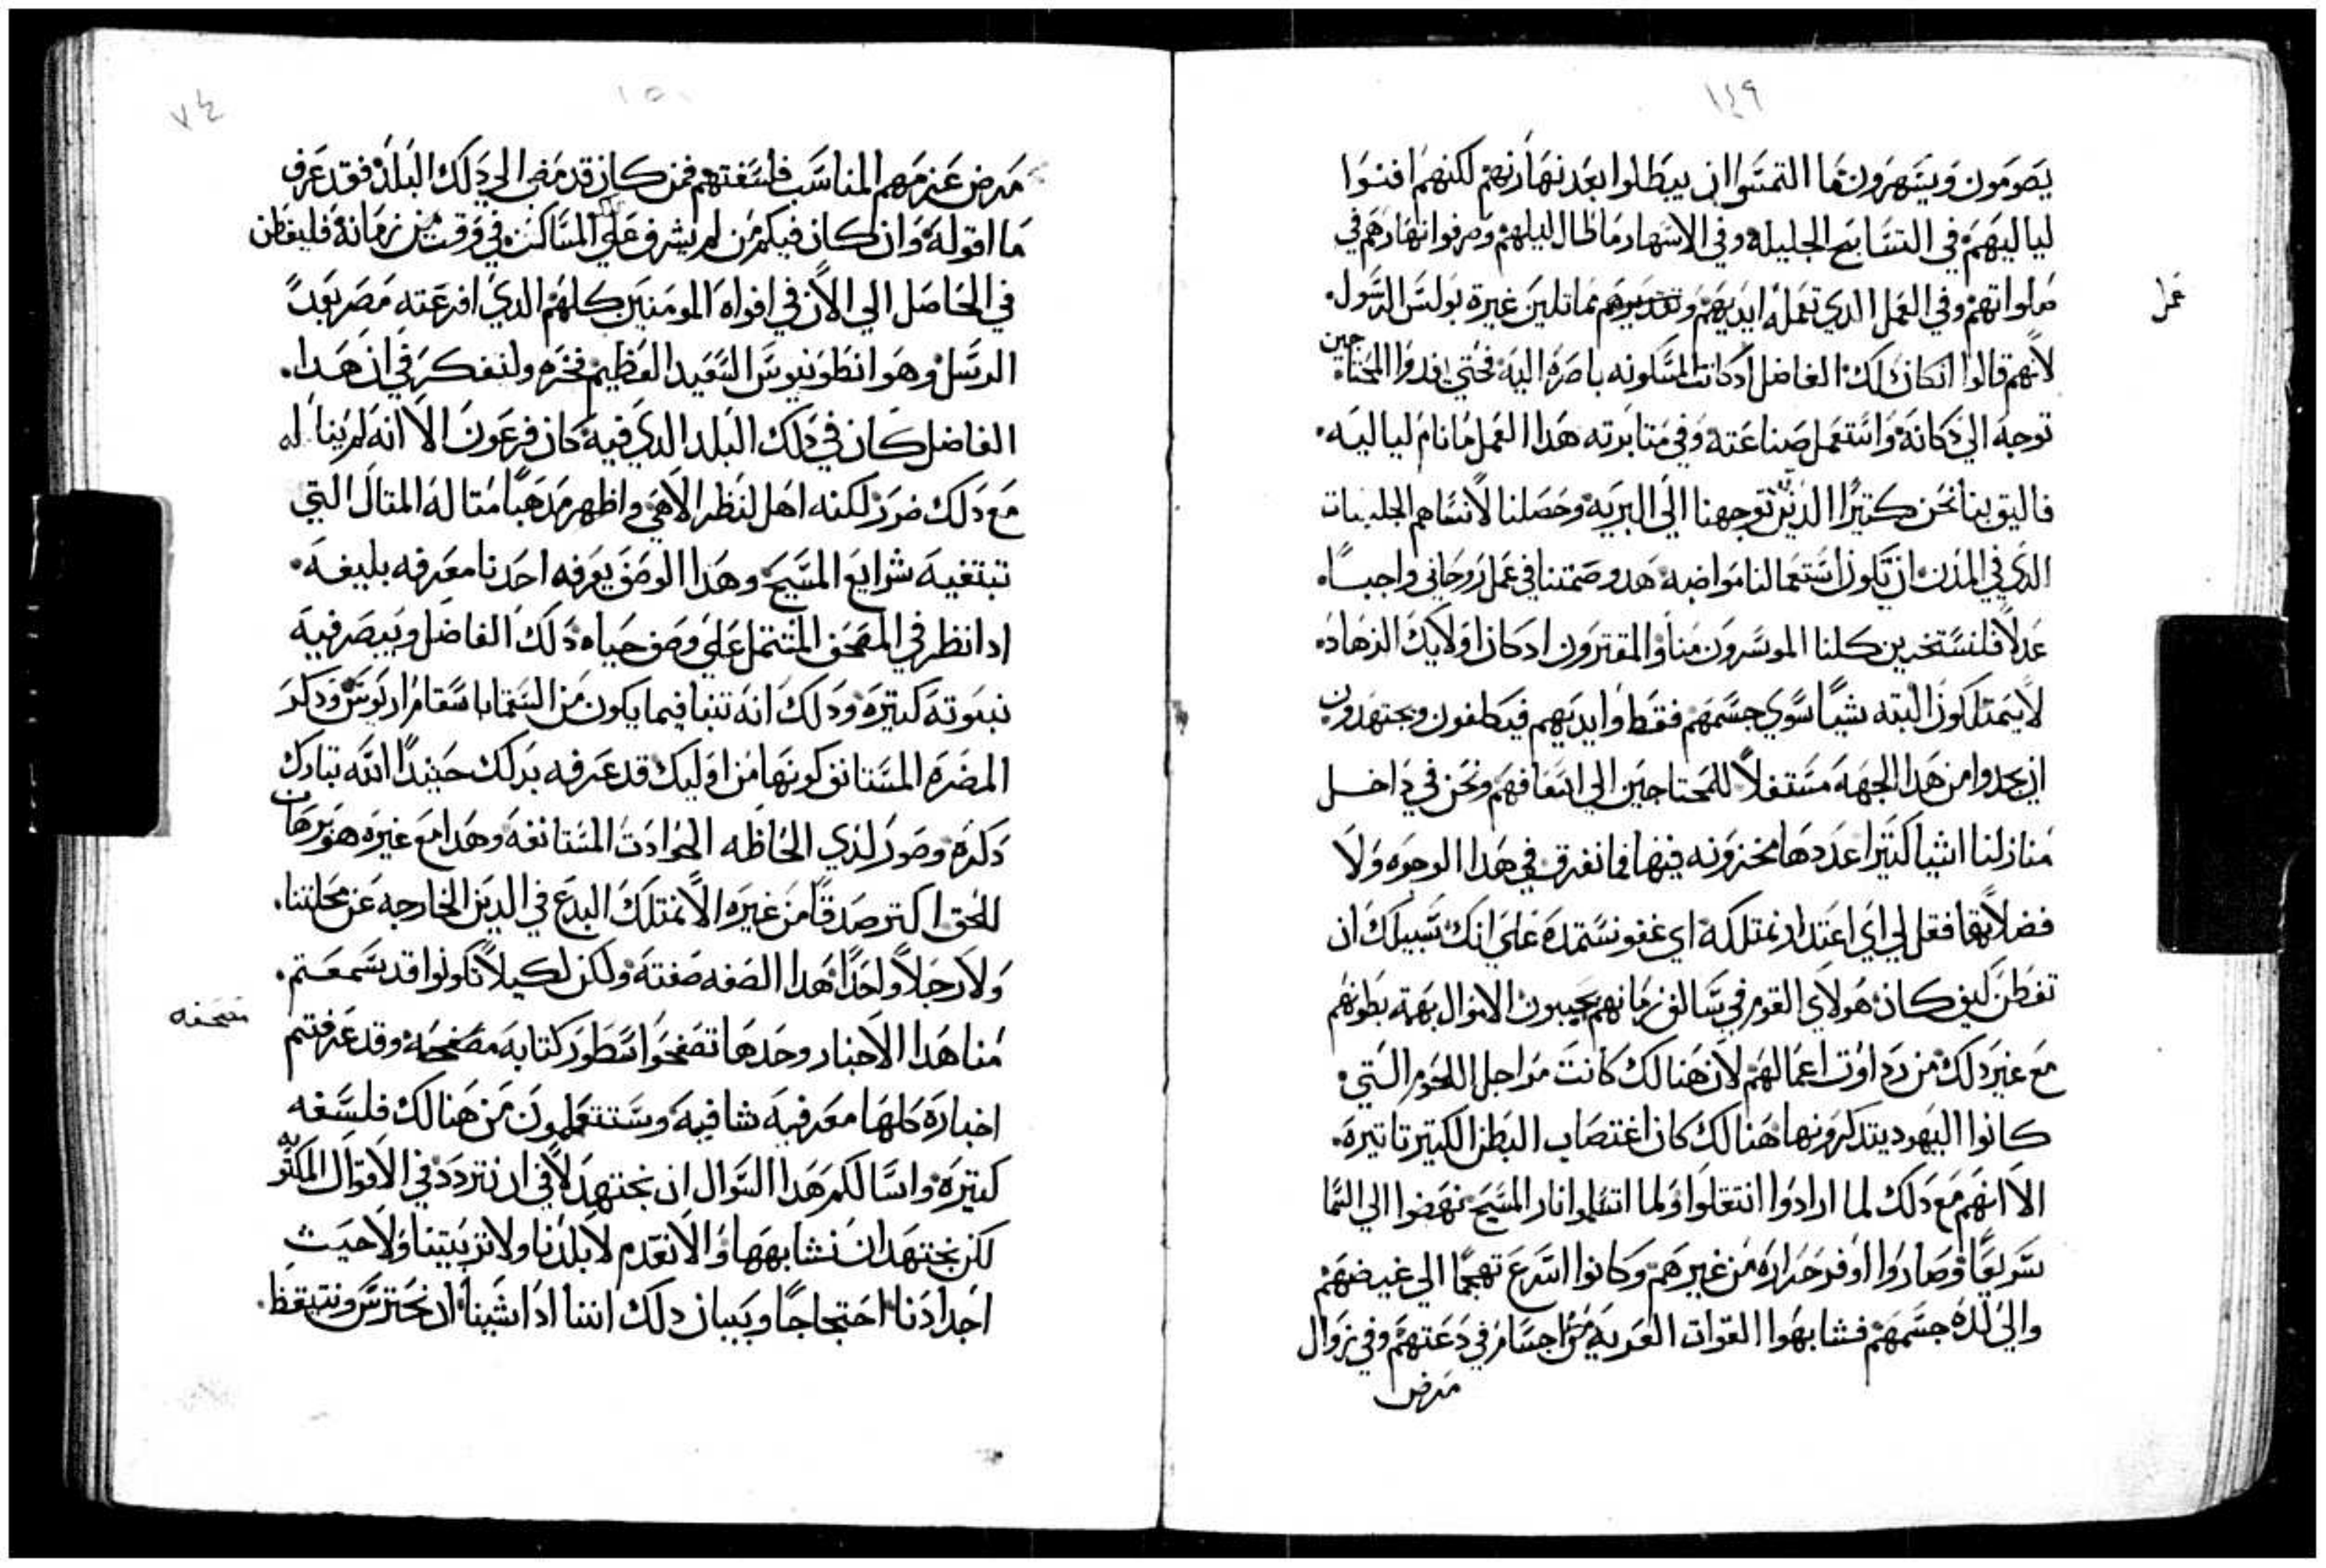 ١٤٩
يصومون ويسهرون ما التمسوا ان يبطلوا بعد نهارهم لكنهم افنوا
لياليهم في التسابيح الجليله وفي الاسهار ما طال ليلهم وصرفوا نهارهم في
صلواتهم وفي العمل الدي تعمله ايديهم مماثلين غيرة بولس الرسول
عمل
لانهم قالوا ان كان دلك الفاضل اد كانت المسكونه باصره اليه فحتي يفدوا المحتاجين
توجه الي دكانه واستعمل صناعته وفي متابرته هدا العمل ما نام لياليه
فاليق بنا نحن كتيرا الدين توجهنا الي البريه وحصلنا لانساهم الجلبات
الدي في المدن ان تكون استعمالنا مواضبه هدو صمتنا في عمل روحاني واجبا
عدلا فلنستخدين كلنا الموسرون منا والمقترون ادكان اولايك الزهاده
لايمتلكون البته شيا سوي جسمهم فقط وايديهم فيطفون ويجتهدون
ان يجدوا من هدا الجهه مستغلا للمحتاجين الي اسعافهم ونحن في داخل
منازلنا اشيا كتيرا عددها مخزونه فيها فما نفرق في هدا الوجوه ولا
فضلاتها فقل لي اي اعتدار نمتلكه اي عفو نستمده علي انك سبيلك ان
تفطن كيف كان هولاي القوم في سالف زمانهم يحبون الاموال بهمة بطونهم
مع غير دلك من رداوت اعمالهم لان هنالك كانت مراجل اللحوم التي
كانوا اليهود يتدكرونها هنالك كان اغتصاب البطن الكتير تاتيره
الا انهم مع دلك لما ارادوا انتقلوا ولما اتسلموا نار المسيح نهضوا الي السما
سريعا وصاروا اوفر حراره من غيرهم وكانوا اسرع تهجما الي غيضهم
والي لدة جسمهم فشابهوا القوات العريه من اجسام في دعتهم وفي زوال
مرض
١٥٠
٧٤
مرض عزمهم المناسب فلسفتهم فمن كان قد مضي الي دلك البلد فقد عرف
ما اقوله وان كان فيكم من لم يشرف علي المساكن في وقت من زمانه فليفطن
في الحاصل الي الان في افواه المومنين كلهم الدي افرعته مصر بعد
الرسل وهو انطونيوس السعيد العظيم فخره ولنفكر في ان هدا
الفاضل كان في دلك البلد الدي فيه كان فرعون الا انه لم يناله
مع دلك ضرر لكنه اهل لنظر الاهي واظهر مدهبا متاله المتال التي
تبتغيه شرايع المسيح وهدا الوصف يعرفه احدنا معرفه بليغه
ادا نظر في المصحف المشتمل علي وصف حياه دلك الفاضل ويبصر فيه
نبوته كتيره ودلك انه تنبا فيما يكون من السقما باسقام اريوس ودكر
المضره المستانف كونها من اوليك قد عرفه بدلك حينيدا الله تبارك
دكره وصور لدي الحاظه الحوادت المستانفه وهدا مع غيره هو برهان
للحق اكتر صدقا من غيره الا نمتلك البدع في الدين الخارجه عن محلتنا
ولا رجلا واحدا هدا الصفه صفته ولكن لكيلا تكونوا قد سمعتم
منا هدا الاخبار وحدها تصفحوا سطور كتابه مصفحه وقد عرفتم
مصحفه
اخباره كلها معرفيه شافيه وستتعلمون من هنالك فلسفه
كتيره واسالكم هدا السوال ان نجتهد لا في ان نتردد في الاقوال المكتوبه
لكن نجتهد ان نشابهها والا نقدم لا بلدنا ولا تربيتنا ولا حيت
اجدادنا احتجاجا وبيان دلك اننا ادا شينا ان نحترس ونتيقظ